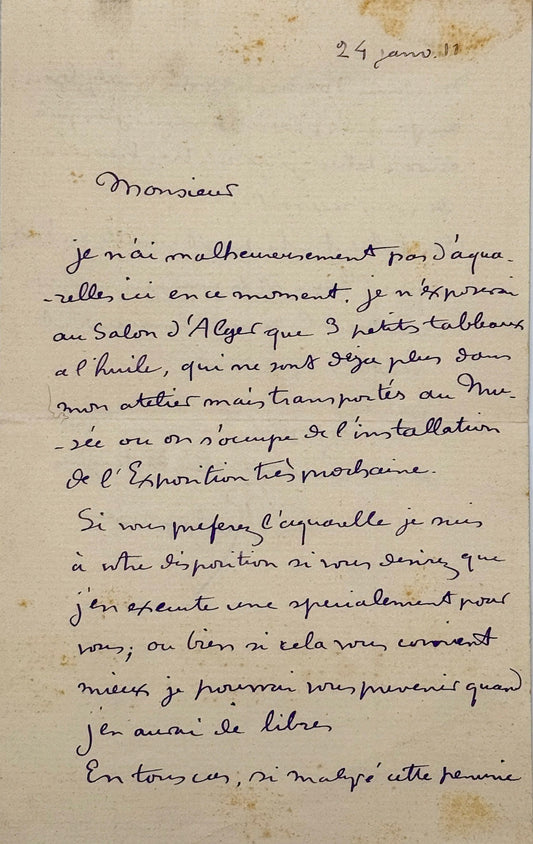 24 janv. 11
Monsieur
je n'ai malheureusement pas d'aqua-
-relles ici en ce moment. je n'exposerai
au Salon d'Alger que 3 petits tableaux
a l'huile, qui ne sont deja plus dans
mon atelier mais transportés au Mu-
-sée ou on s'occupe de l'installation
de l'Exposition très prochaine.
Si vous preferez l'aquarelle je suis
à votre disposition si vous desirez que
j'en execute une specialement pour
vous; ou bien si cela vous convient
mieux je pourrai vous prevenir quand
j'en aurai de libres
En tous cas, si malgré cette penurie